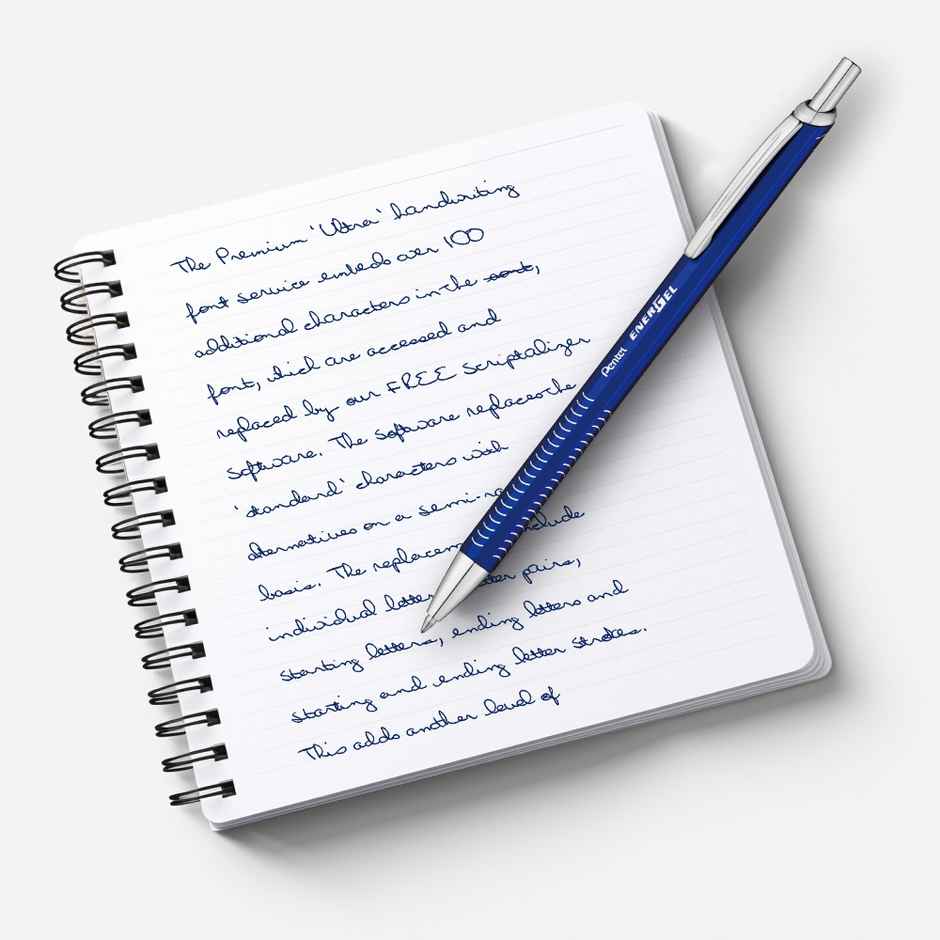 The Premium 'Ultra' handwriting
font service embeds over 100
additional characters in the font,
font, which are accessed and
replaced by our FREE Scriptalizer
Software. The Software replaces the
'standard' characters with
alternatives on a semi-ra
basis. The replacem nclude
individual letter tter pairs,
starting letters, ending letters and
starting and ending letter strokes.
This adds another level of
Pentel ENERGEL